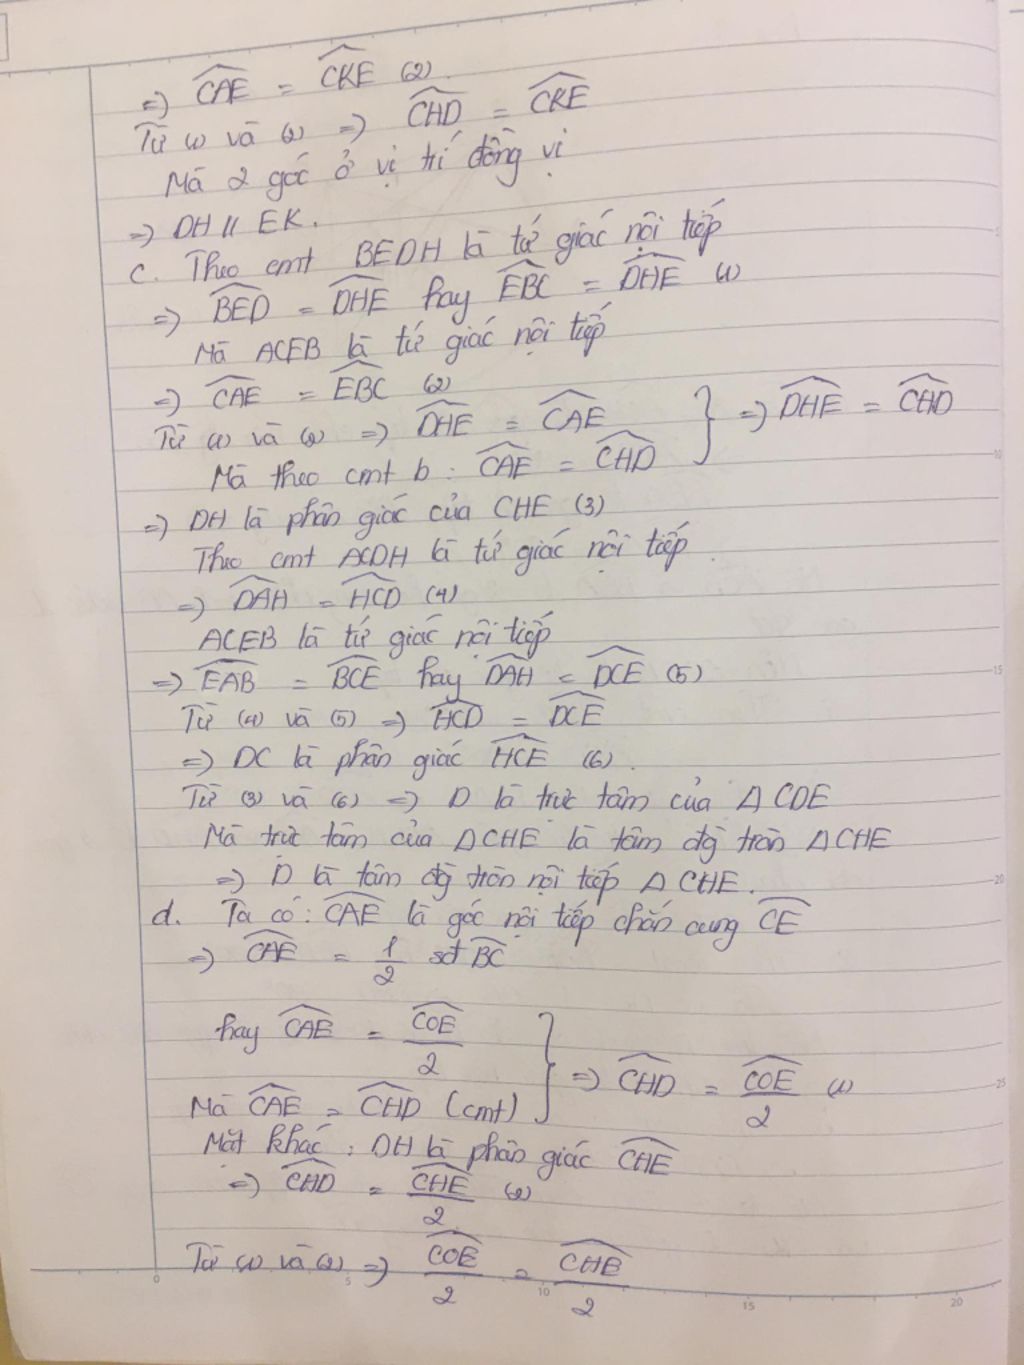 => CAE = CKE (2).
Từ (1) và (2) => CHD = CKE
Mà 2 góc ở vị trí đồng vị
=> DH // EK.
c. Theo cmt BEDH là tứ giác nội tiếp
=> BED = DHE hay EBC = DHE (1)
Mà ACEB là tứ giác nội tiếp
=> CAE = EBC (2)
Từ (1) và (2) => DHE = CAE
Mà theo cmt b : CAE = CHD } => DHE = CHD
=> DH là phân giác của CHE (3)
Theo cmt ACDH là tứ giác nội tiếp.
=> DAH = HCD (4)
ACEB là tứ giác nội tiếp
=> EAB = BCE hay DAH = DCE (5)
Từ (4) và (5) => HCD = DCE
=> DC là phân giác HCE (6).
Từ (3) và (6) => D là trực tâm của Δ COE
Mà trực tâm của Δ CHE là tâm đg tròn Δ CHE
=> D là tâm đg tròn nội tiếp Δ CHE.
d. Ta có : CAE là góc nội tiếp chắn cung CE
=> CAE = 1/2 sđ BC
hay CAE = COE/2
Mà CAE = CHD (cmt) } => CHD = COE/2 (1)
Mặt khác : DH là phân giác CHE
=> CHD = CHE/2 (2)
Từ (1) và (2) => COE/2 = CHE/2